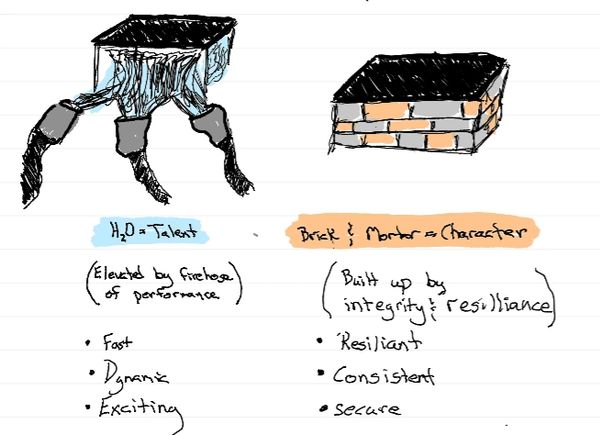 H2O = Talent
(Elevated by firehose
of performance)
• Fast
• Dynamic
• Exciting
Brick & Mortor = Character
(Built up by
integrity & resilliance)
• Resiliant
• Consistent
• secure